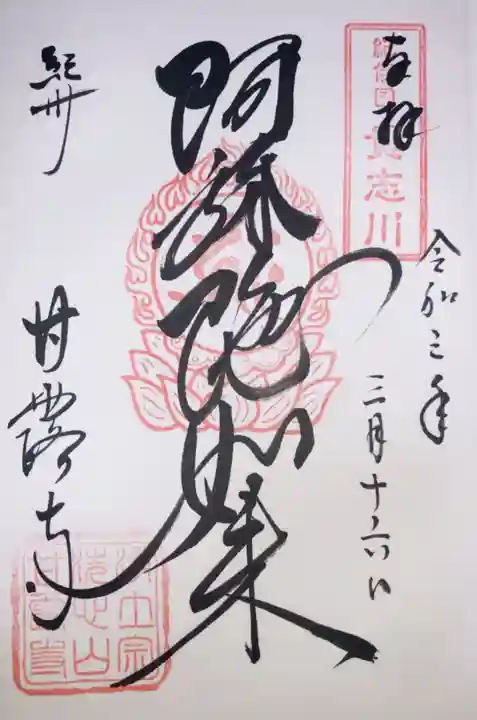 奉拝
貴志川
令和三年
三月十六日
阿弥陀如来
紀州
甘露寺
浄土宗